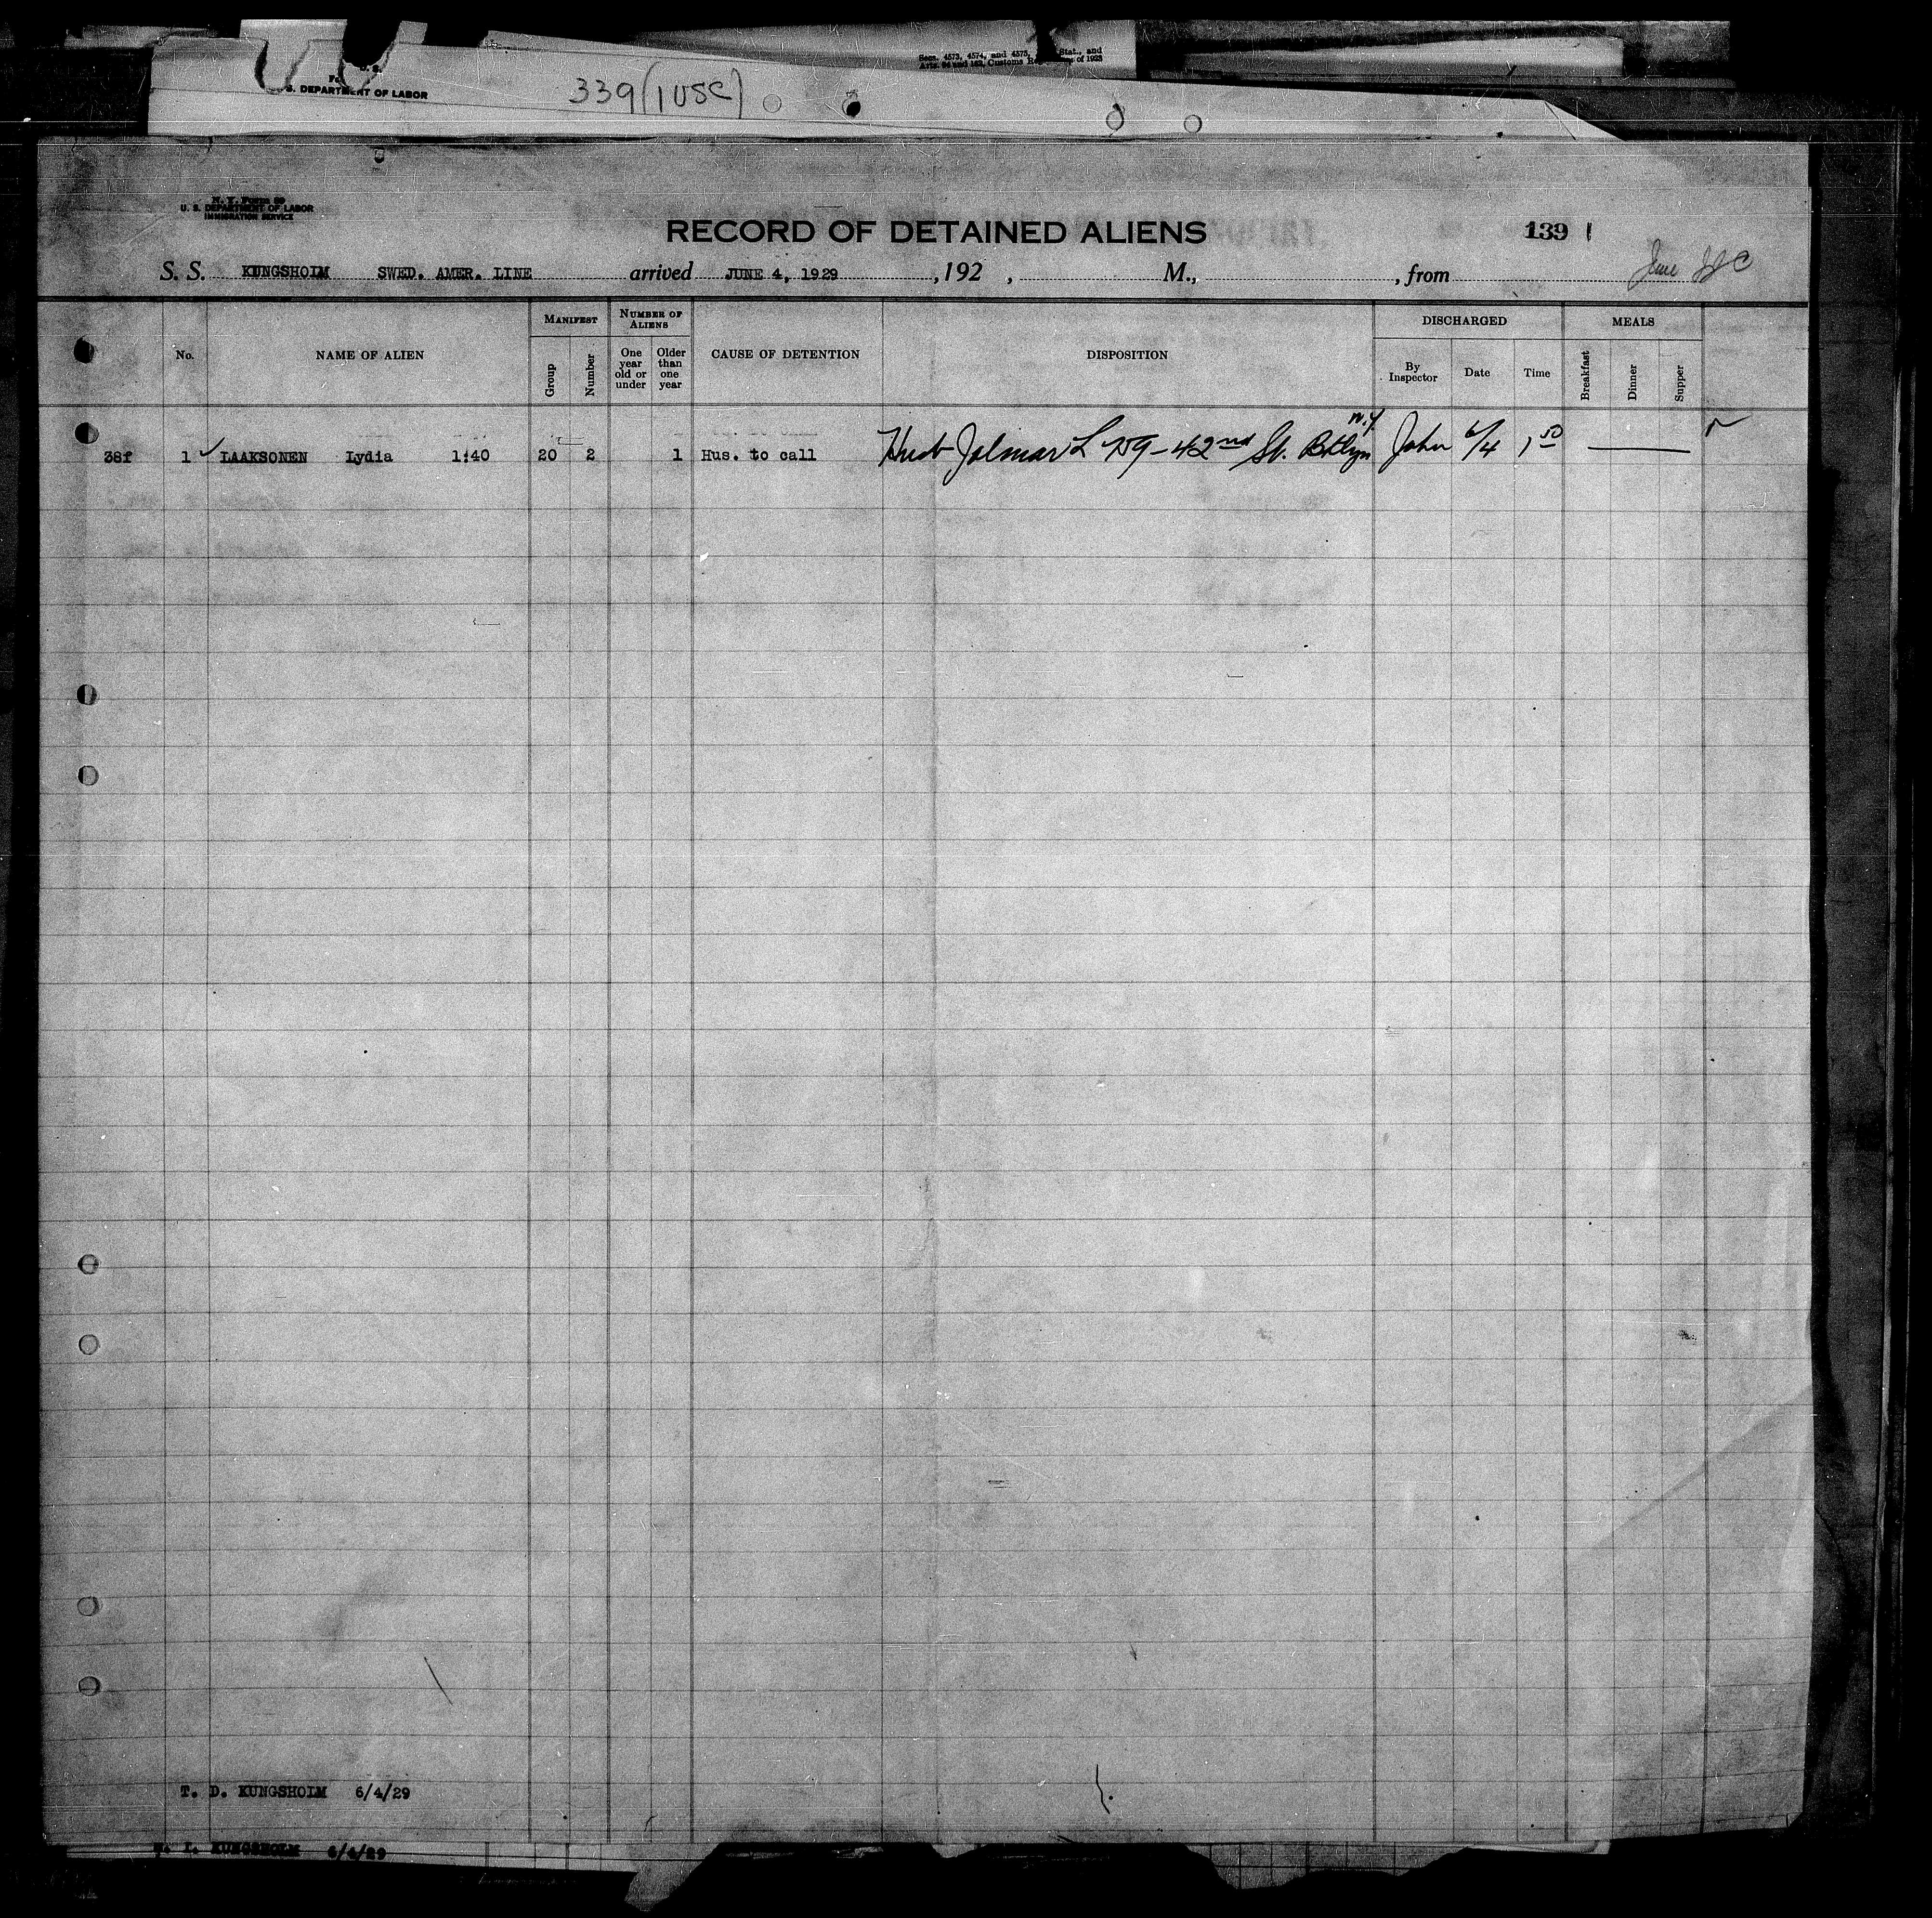 Secs. 4573, 4574, and 4575, Stat., and
Arts. and 163, Customs of 1923
S. DEPARTMENT OF LABOR
339 (1 USC)
N. Y. Form 99
U. S. DEPARTMENT OF LABOR
IMMIGRATION SERVICE
RECORD OF DETAINED ALIENS
139 1
S. S. KUNGSHOLM SWED. AMER. LINE arrived JUNE 4, 1929, 192 , M., , from
No. NAME OF ALIEN MANIFEST Group Number NUMBER OF ALIENS One year old or under Older than one year CAUSE OF DETENTION DISPOSITION DISCHARGED By Inspector Date Time MEALS Breakfast Dinner Supper
38f 1 ✓ LAAKSONEN Lydia 1:40 20 2 1 Hus. to call Husb Jalmar L 759-42nd St. Bklyn N.Y. John 6/4 1 50
T. D. KUNGSHOLM 6/4/29
L. KUNGSHOLM 6/4/29